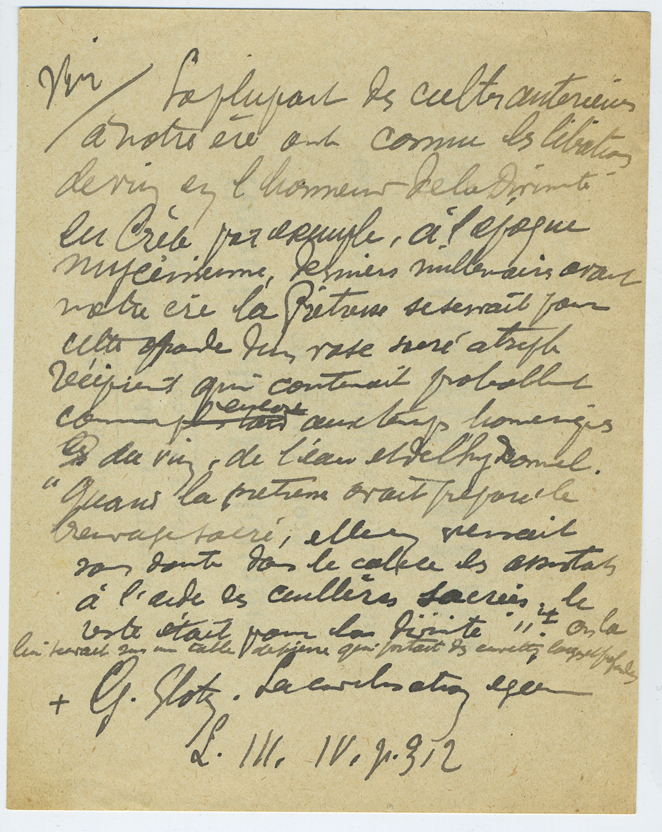 Vin / La plupart des cultes anterieurs
à notre ère ont connu les libations
de vin en l'honneur de la Divinité
En Crète par exemple, à l'époque
mycénienne, derniers millenaires avant
notre ère la Prêtresse se servait pour
cette offrande d'un vase sacré a triple
récipient qui contenait probablmt
comme plus tard encore aux temps homeriques
du vin, de l'eau et de l'hydromel.
"Quand la pretresse avait préparé le
breuvage sacré, elle en versait
sans doute dans le calice des assistants
à l'aide des cuillères sacrées, le
reste était pour la divinité" on la
lui servait sur un table de pierre qui portait des cuvettes
+ G. Glotz. La civilisation egéenne
L. III. IV. p. 312